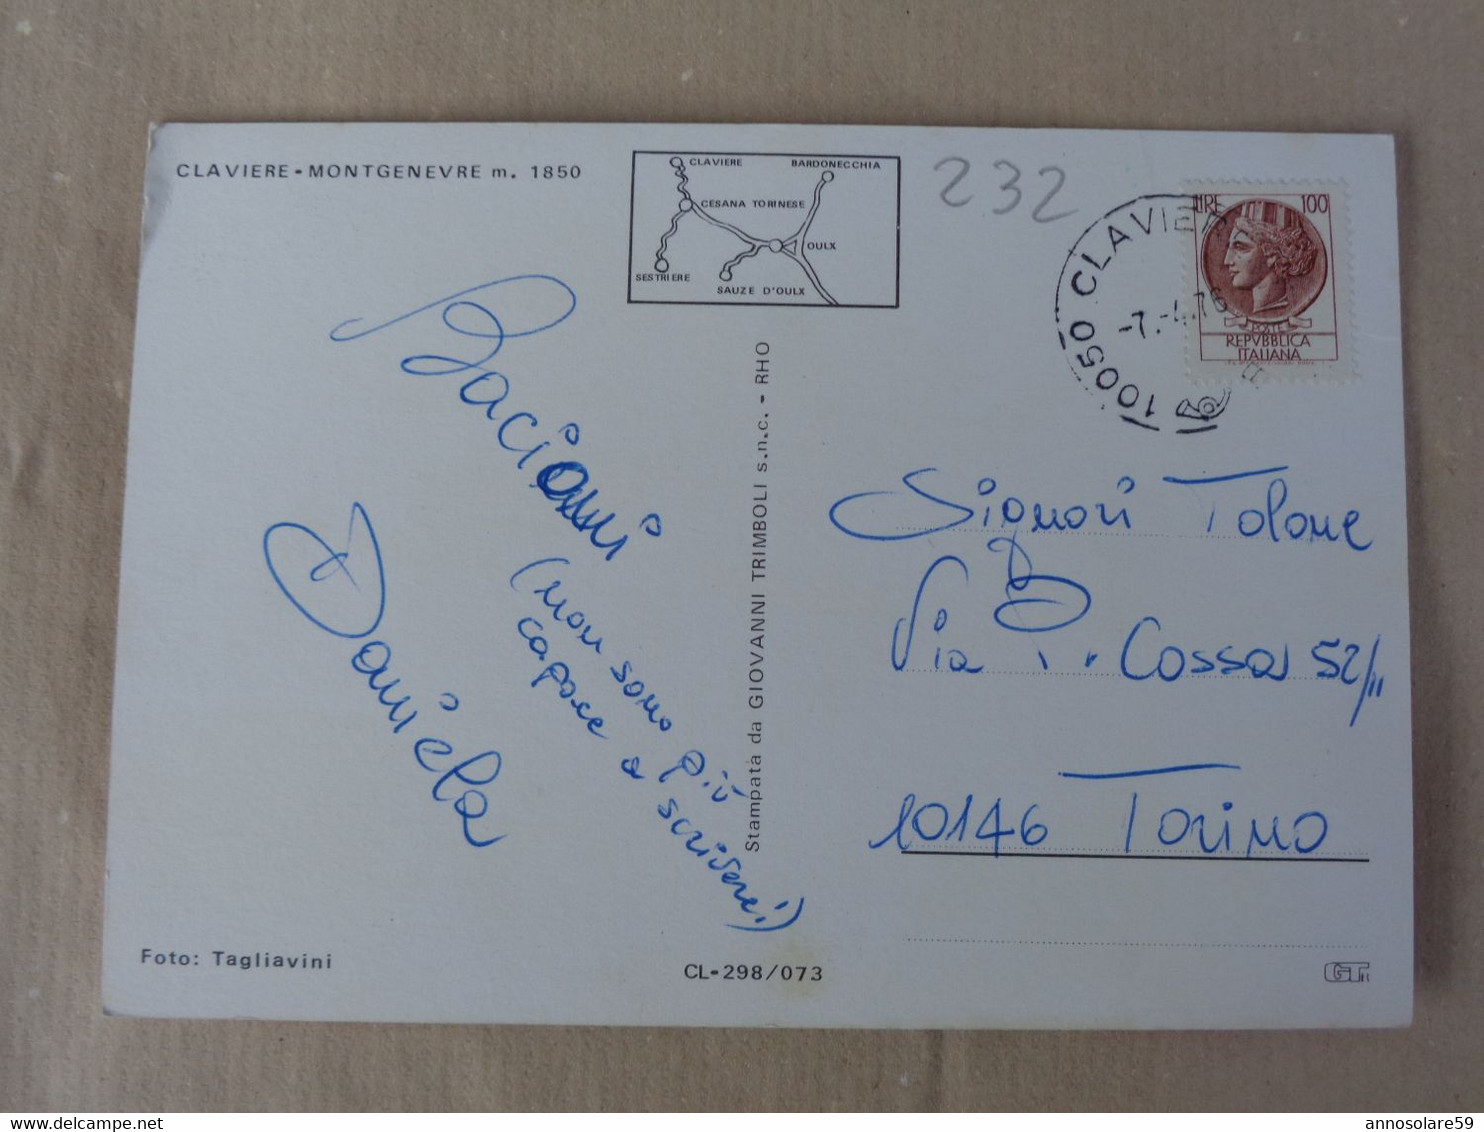 CLAVIERE - MONTGENEVRE m. 1850
CLAVIERE
BARDONECCHIA
CESANA TORINESE
OULX
SESTRIERE
SAUZE D'OULX
232
10050 CLAVIER
-7.-4.76
LIRE 100
REPVBBLICA
ITALIANA
Bacioni
(non sono più
capace a scrivere!)
Daniela
Stampata da GIOVANNI TRIMBOLI s.n.c. - RHO
Signori Tolone
Via P. Cossa 52/11
10146 Torino
Foto: Tagliavini
CL-298/073
GT
annosolare59